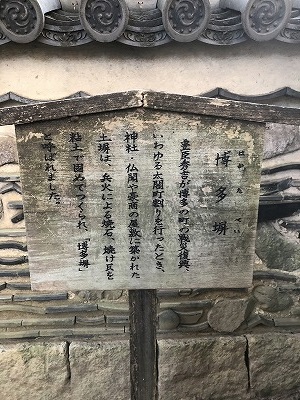 博多塀
豊臣秀吉が博多の町の戦災復興、
いわゆる太閤町割りを行ったとき、
神社・仏閣や豪商の屋敷に築かれた
土塀は、兵火による焼石、焼け瓦を
粘土で固めてつくられ、「博多塀」
と呼ばれました。